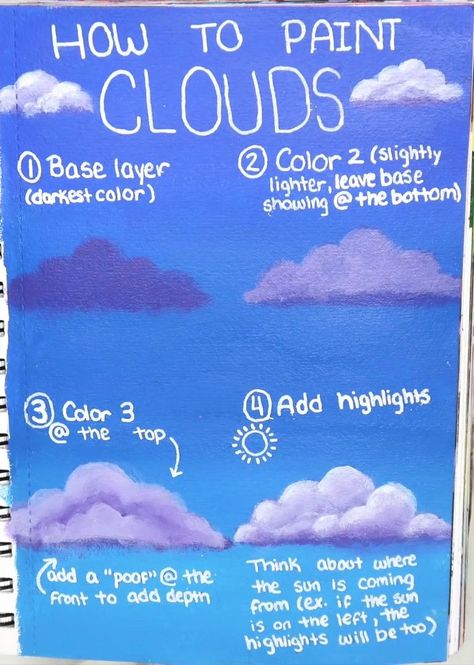 HOW TO PAINT
CLOUDS
① Base layer
(darkest color)
② Color 2 (slightly
lighter, leave base
showing @ the bottom)
③ Color 3
@ the top
add a "poof" @ the
front to add depth
④ Add highlights
Think about where
the sun is coming
from (ex. if the sun
is on the left, the
highlights will be too)